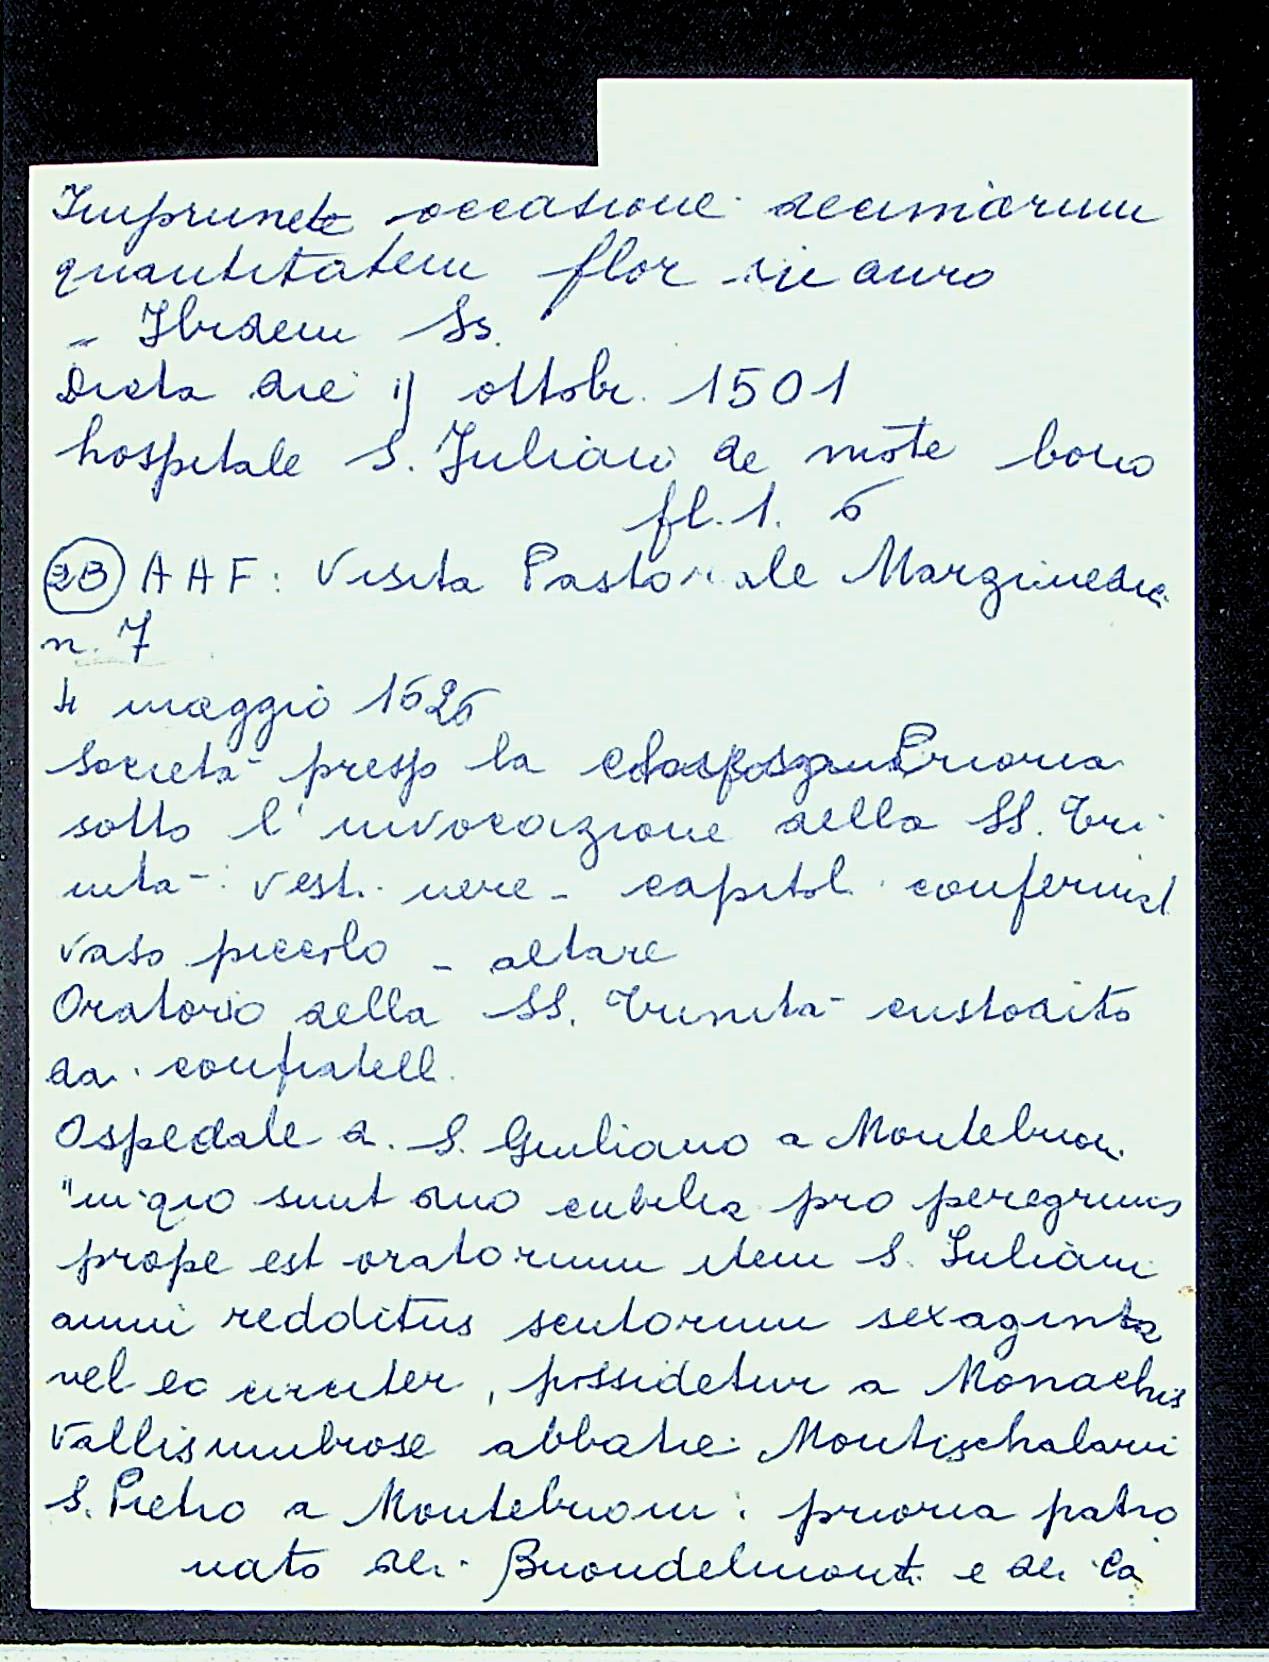 Imprunete occasione decimarum
quantitatem flor in auro
- Ibidem Ss.
Dicta die ij ottobr. 1501
hospitale S. Juliani de mõte bono
fl. 1. 6
2B AAF: Visita Pastorale Marzimedici
n. 7
4 maggio 1626
Società presso la Prioria
sotto l'invocazione della SS. Tri
nità: vest. nere - capitol. confermat
vaso piccolo - altare
Oratorio della SS. Trinità custodito
dai confratell.
Ospedale d. S. Giuliano a Montebuon.
"in quo sunt duo cubilia pro peregrinis
prope est oratorium item S. Juliani
annui redditus scutorum sexaginta
vel eo circiter, possidetur a Monachis
Vallisumbrose abbatie Montischalarii
S. Pietro a Montebuoni: prioria patro
nato dei Buondelmonti e dei Ca